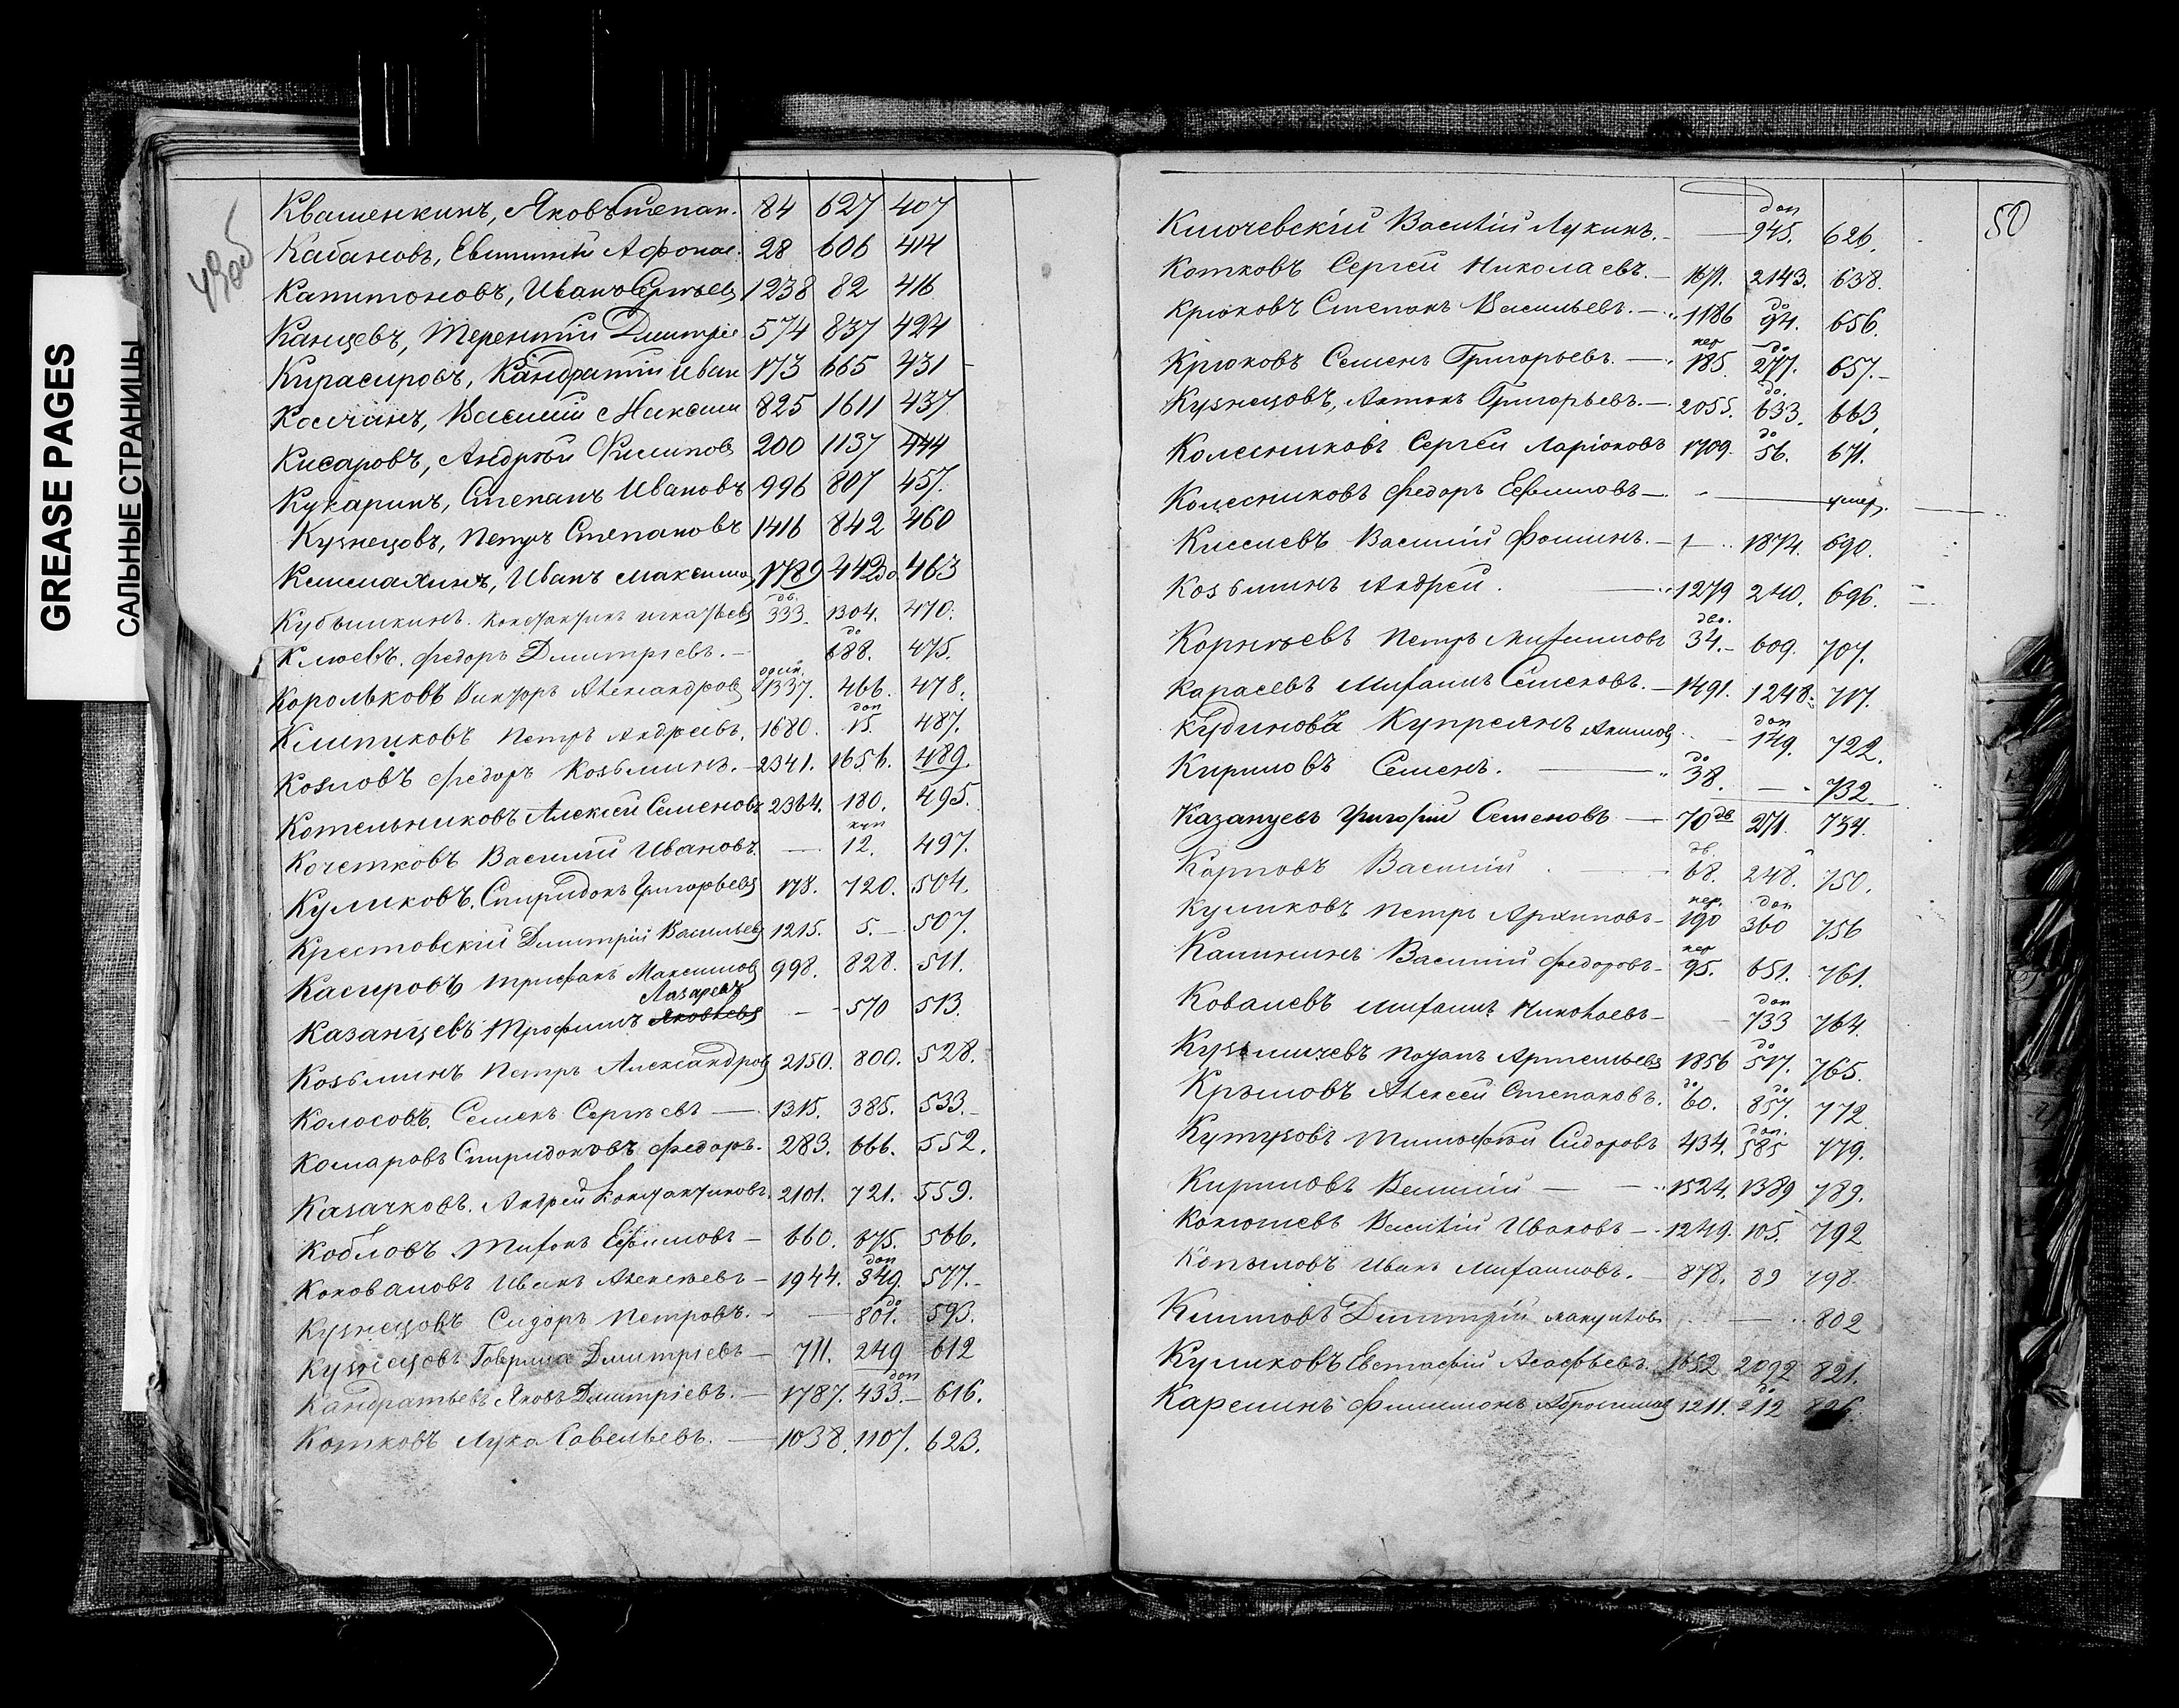 GREASE PAGES
САЛЬНЫЕ СТРАНИЦЫ
49об
Квашенкинъ, Яковъ Степан. 84 627 407
Кабановъ, Евтихій Афонас. 28 606 414
Капитоновъ, Иванъ Сергѣев 1238 82 416
Канцевъ, Терентій Дмитріе 574 837 424
Кирасировъ, Кандратій Иван 173 665 431
Колчанъ, Василій Максим 825 1611 437
Кисаровъ, Андрѣй Филипов 200 1137 444
Кукаринъ, Степанъ Ивановъ 996 807 457.
Кузнецовъ, Петръ Степановъ 1416 842 460
Климахинъ, Иванъ Максимо 1789 442до 463
Кубышкинъ. Константинъ Игнатьев дв. 333. 1304. 470.
Клюевъ. Федоръ Дмитріевъ. — до 688. 475.
Корольковъ Викторъ Александров один 1337. 466. 478.
Клыпиковъ Петръ Андреевъ. 1680. доп 15. 487.
Козловъ Федоръ Козьминъ. — 2341. 1656. 489.
Котельниковъ Алексѣй Семеновъ 2364. 180. 495.
Кочетковъ Василій Ивановъ. — куп 12. 497.
Куликовъ. Спиридонъ Григорьев 178. 720. 504.
Крестовскій Дмитрій Васильев 1215. 5. — 507.
Касировъ Трифанъ Максимов 998. 828. 511.
Лазаревъ
Казанцевъ Трофимъ Яковлев — 570 513.
Козьминъ Петръ Александров 2150. 800. 528.
Колосовъ. Семенъ Сергѣевъ — 1315. 385. 533.
Комаровъ Спиридоновъ Федоръ. 283. 666. 552.
Казачковъ. Андрей Константиновъ. 2101. 721. 559.
Кобловъ Тихонъ Ефимовъ — 660. 675. 566.
Коноваловъ Иванъ Алексѣевъ — 1944. доп 349. 577.
Кузнецовъ Сидоръ Петровъ. — до 801. 593.
Кузнецовъ Гаврила Дмитріевъ — 711. 249 612
Кандратьевъ Яковъ Дмитріевъ. — 1787. доп 433. — 616.
Котковъ Лука Савельевъ. — 1038. 1107. 623.
50
Ключевскій Василій Лукинъ. — доп 945. 626.
Котковъ Сергей Николаевъ. — 1671. 2143. 638.
Крюковъ Степанъ Васильевъ. — 1186 до 94. 656.
Крюковъ Семенъ Григорьевъ. — пер 185. до 277. 657. —
Кузнецовъ, Антонъ Григорьевъ. — 2055. до. 633. 663.
Колесниковъ Сергей Ларіоновъ 1709. до 56. 671.
Колесниковъ Федоръ Ефимовъ — умер.
Киселевъ Василій Фоминъ. — 1 1874. 690.
Козьминъ Андрей. 1279 240. 696.
Корнѣевъ Петръ Михаиловъ дво. 34. — 609. 707.
Карасевъ Михаилъ Семеновъ. — 1491. 1248. 717.
Кудиновъ Купреянъ Акимов доп 149. 722.
Кириловъ Семенъ. до 38. — 732.
Казанцевъ Григорій Семеновъ — 70 дв 271. 734.
Карповъ Василій дв 68. 248. 750.
Куликовъ Петръ Архиповъ — пер. 190 доп 360 756
Калининъ Василій Федоровъ — пер 95. 651. 761.
Ковалевъ Михаилъ Николаевъ — доп 733 764.
Кузьмичевъ Потапъ Артемьев 1856 до 517. 765.
Крыловъ Алексей Степановъ. до 60. до 857. 772.
Кутузовъ Тимофѣй Сидоровъ 434. доп. 585 779.
Кириловъ Василій — 1524. 1389 789.
Конюшевъ Василій Ивановъ — 1249. 105. 792
Копыловъ Иванъ Михаиловъ. — 878. 89 798.
Климовъ Дмитрій — 802
Куликовъ Евстафій Асафьевъ. 1652 2092 821.
Карелинъ Филимонъ Абросимов 1211. до 212 826.